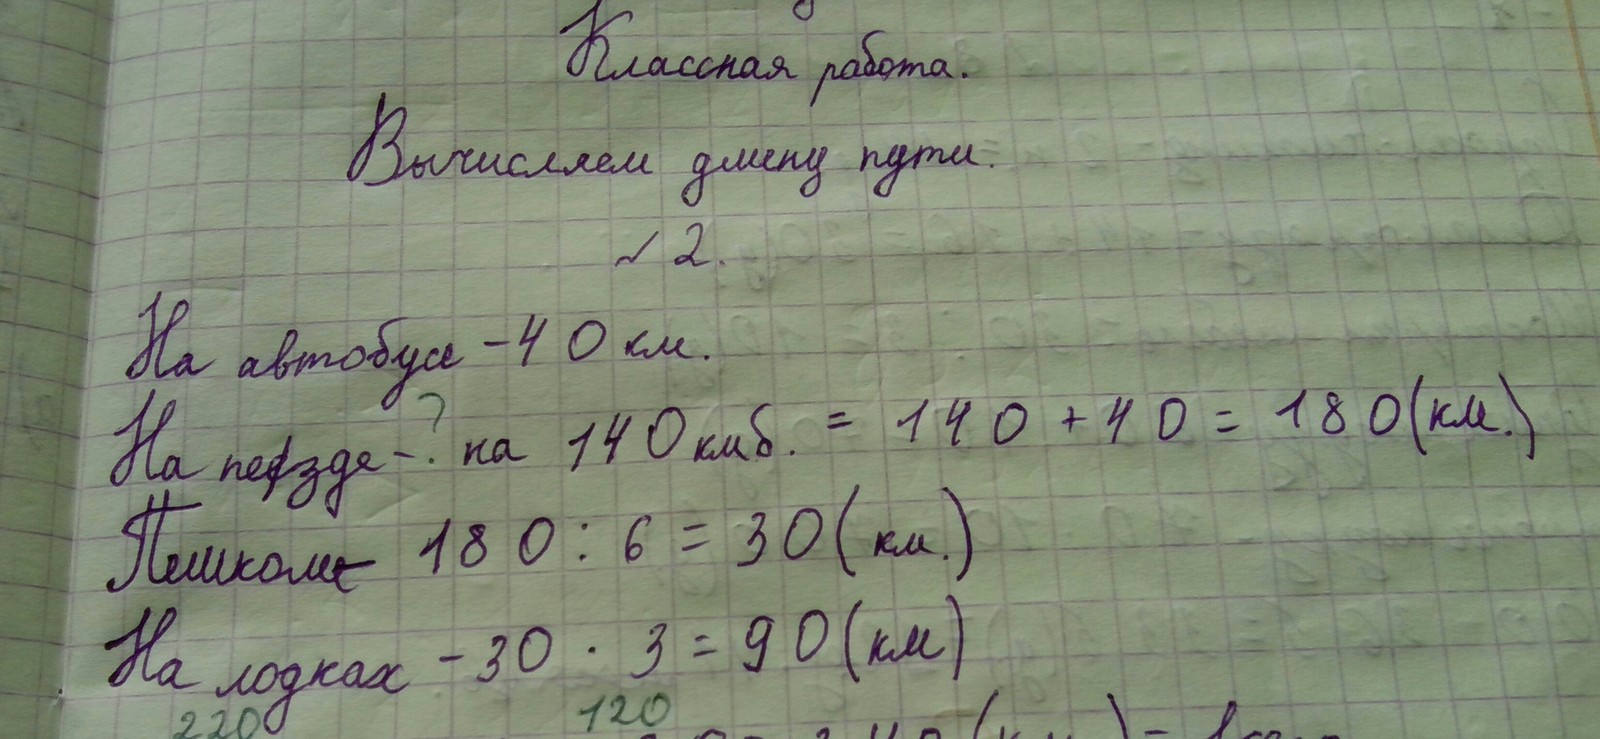 Классная работа.
Вычисляем длину пути.
№ 2.
На автобусе - 40 км.
На поезде - ? на 140 км б. = 140 + 40 = 180 (км.)
Пешком - 180 : 6 = 30 (км.)
На лодках - 30 · 3 = 90 (км)
220 120